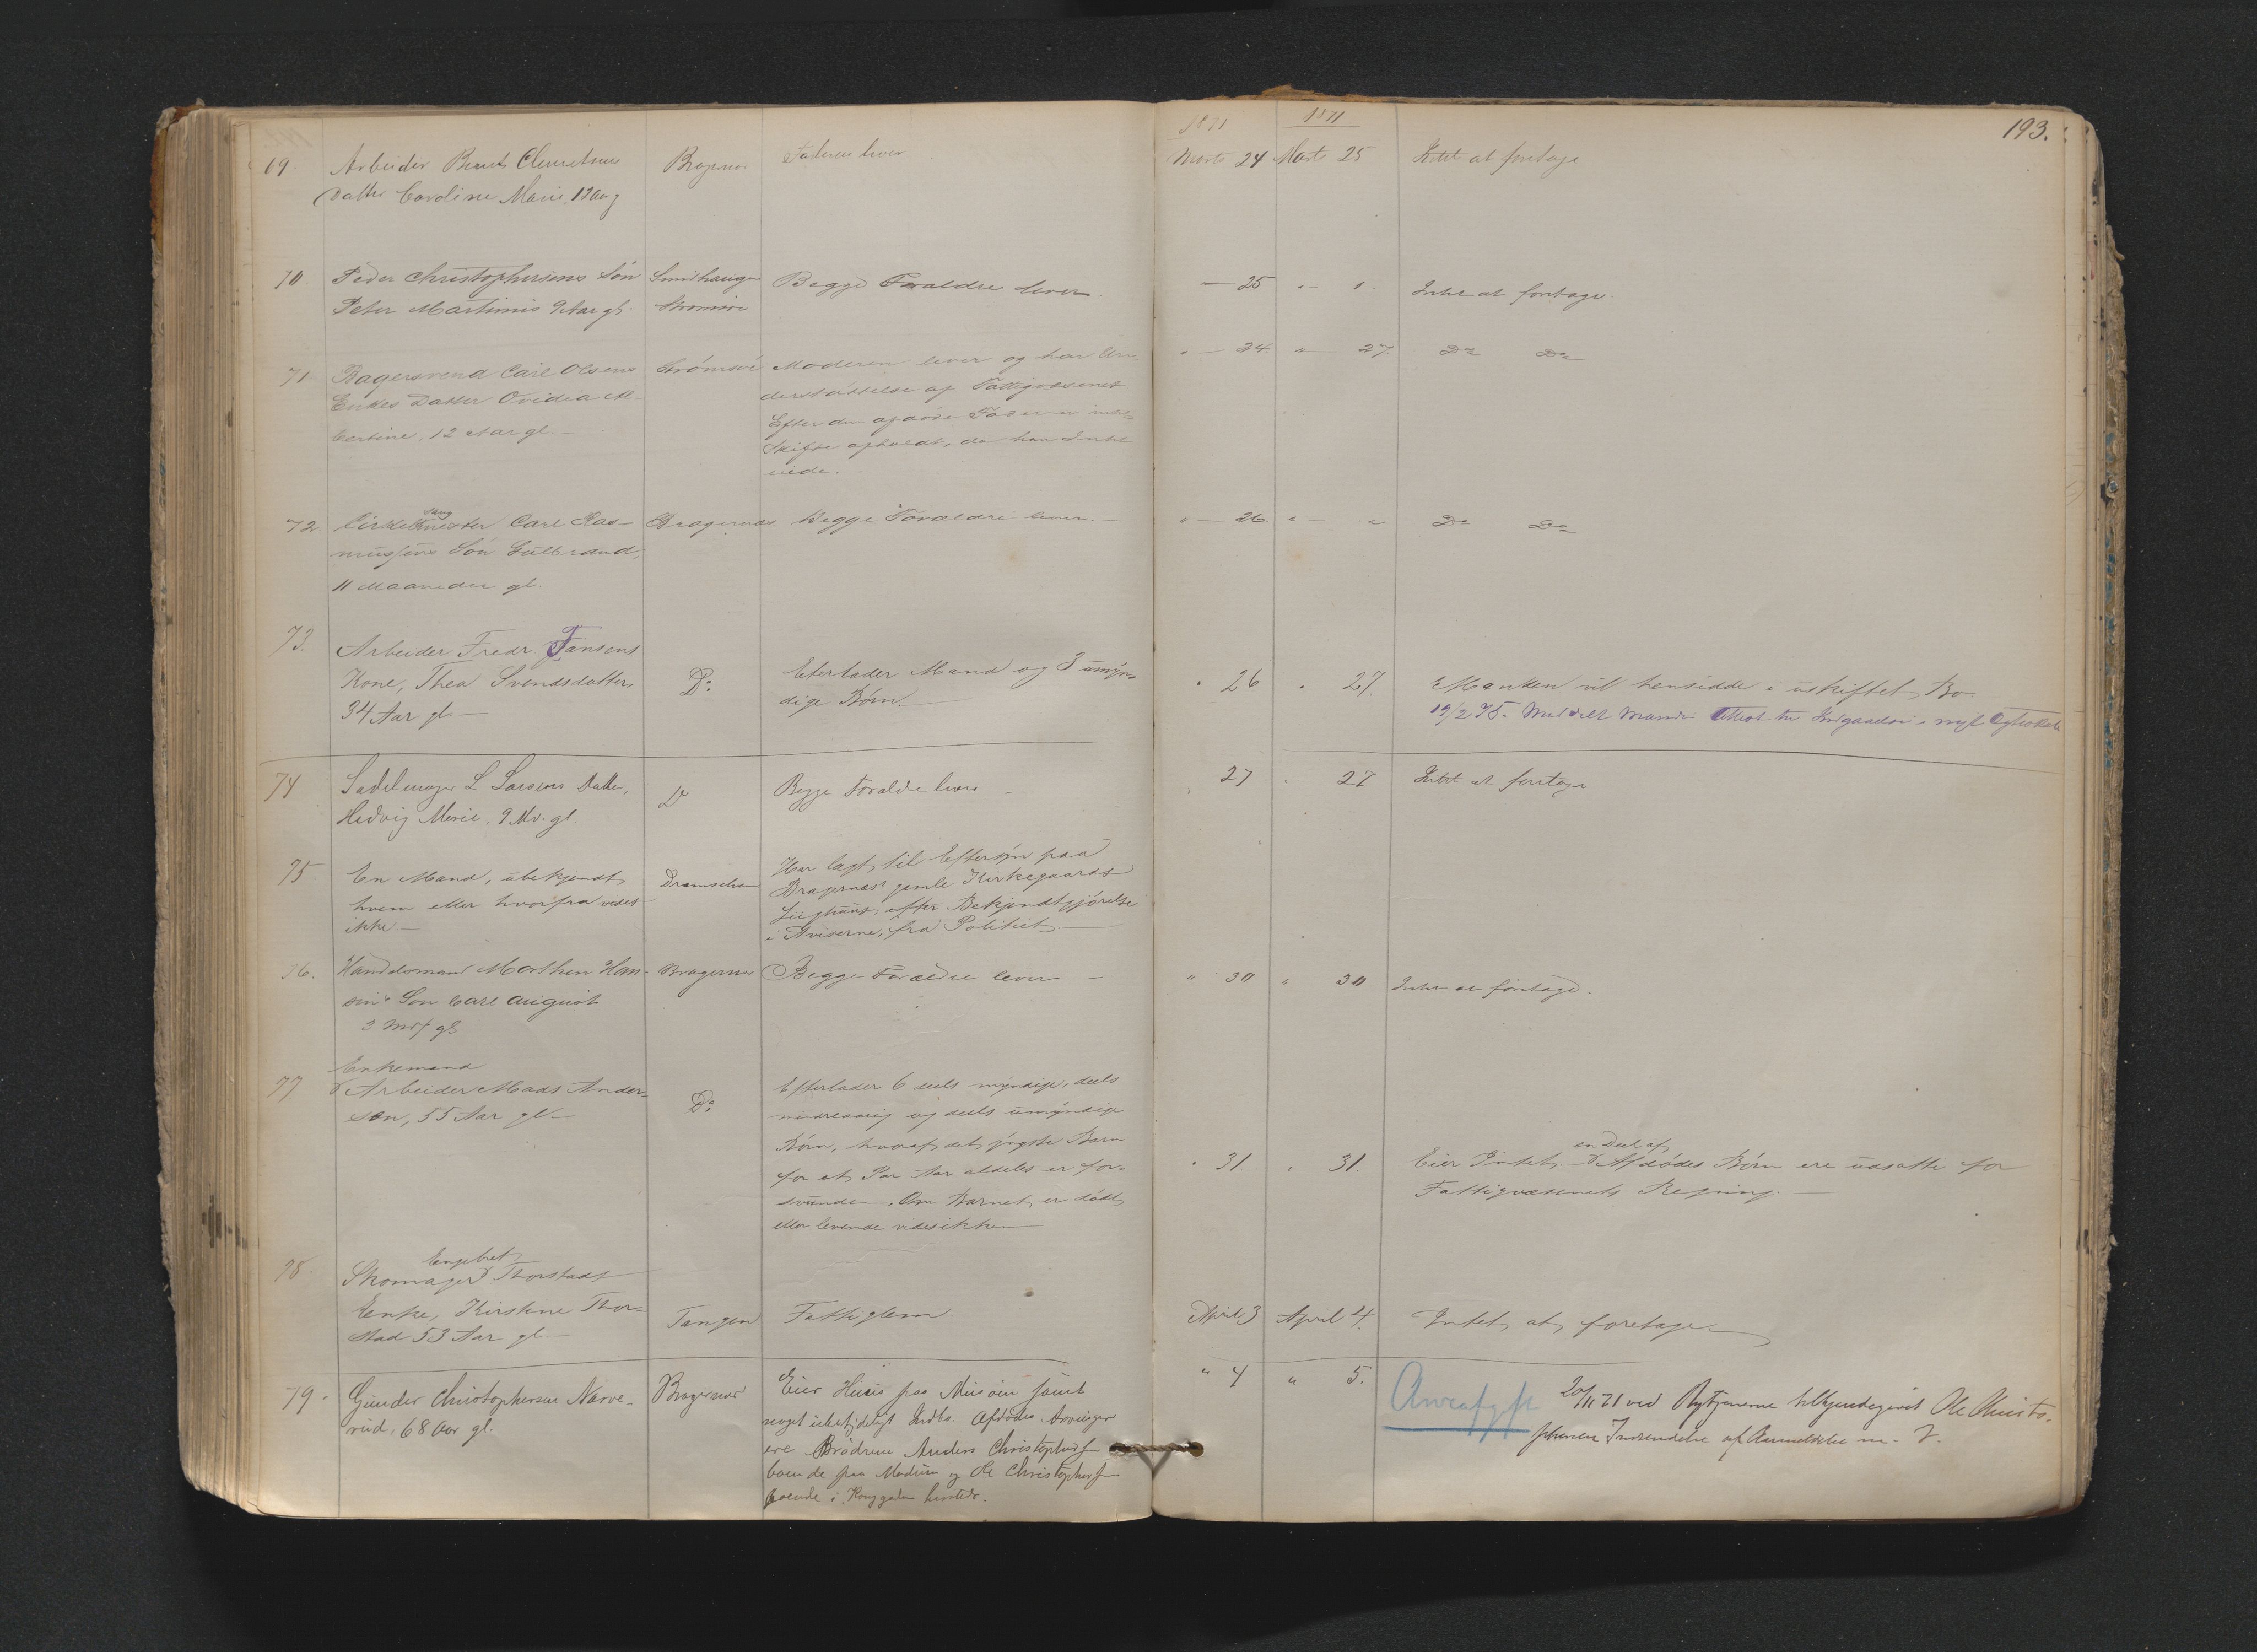 1871 1871 193.
69. Arbeider Clemetsens Bragernæs Faderen lever Marts 24 Marts 25 Intet at foretage
Datter Caroline Marie, 13 Aar g
70 Peder Christophersens Søn Smidhaugen Begge Forældre lever. — 25 „ — „ Intet at foretage.
Peter Martinius 9 Aar gl. Strømsø
71 Bagersvend Carl Olsens Strømsø Moderen lever og har Un- „ — 24. „ — 27. Do Do
Enkes Datter Ovidia Al- derstøttelse af Fattigvæsenet.
bertine, 12 Aar gl. — Efter den afdøde Fader er intet
Skifte afholdt, da han Intet
eiede.
72 Cirkelsaugmester Carl Ras- Bragernæs Begge Forældre lever. — „ — 26. „ — „ Do Do
mussens Søn Gulbrand,
11 Maaneder gl.
73. Arbeider Fredr Jansens
Kone, Thea Svendsdatter Do Eterlader Mand og 3 umyn- „ 26 „ 27. Manden vil hensidde i uskiftet Bo
34 Aar gl — dige Børn. — 19/2 75. Meddelt Manden Attest til Indgaaelse i nyt Ægteskab
74 Sadelmager L Larsens Datter, Do Begge Forældre lever „ 27 „ 27 Intet at foretage
Hedvig Marie, 9 Md. gl.
75 En Mand, ubekjendt, Dramselven Har lagt til Eftersyn paa
hvem eller hvorfra vides Bragernæs gamle Kirkegaards
ikke — Liighuus, efter Bekjendtgjørelse
i Aviserne, fra Politiet. —
76. Handelsmand Morthen Han- Bragernæs Begge Forældre lever — „ 30 „ 30 Intet at foretage.
sens Søn Carl August
3 Mdr gl
Enkemand
77 Arbeider Mads Ander- Do Efterlader 6 deels myndige, deels
sen, 55 Aar gl. — mindreaarig og deels umyndige
Børn, hvoraf det yngste Barn
for et Par Aar aldeles er for- „ 31 „ 31. Eier Intet. — en Deel af Afdødes Børn ere udsatte for
svunden. Om Barnet er dødt Fattigvæsenets Regning. —
eller levende vides ikke
78. Skomager Engebret Thorstads
Enke, Kirstine Thor- Tangen Fattiglem April 3 April 4. Intet at foretage
stad 53 Aar gl. —
79. Gunder Christophersen Narve- Bragernæs Eier Huus paa Muusøen samt „ 4 „ 5. Arveafgift 20/11 71 ved Rytterne tilkjendegivet Ole Christo-
rud, 68 Aar gl. noget ubetydeligt Indbo. Afdødes Arvinger phersen Indsendelse af Anmeldelse m. V.
ere Brødrene Anders Christophers
boende paa Modum og Ole Christophers
boende i Konggaden herstedr.